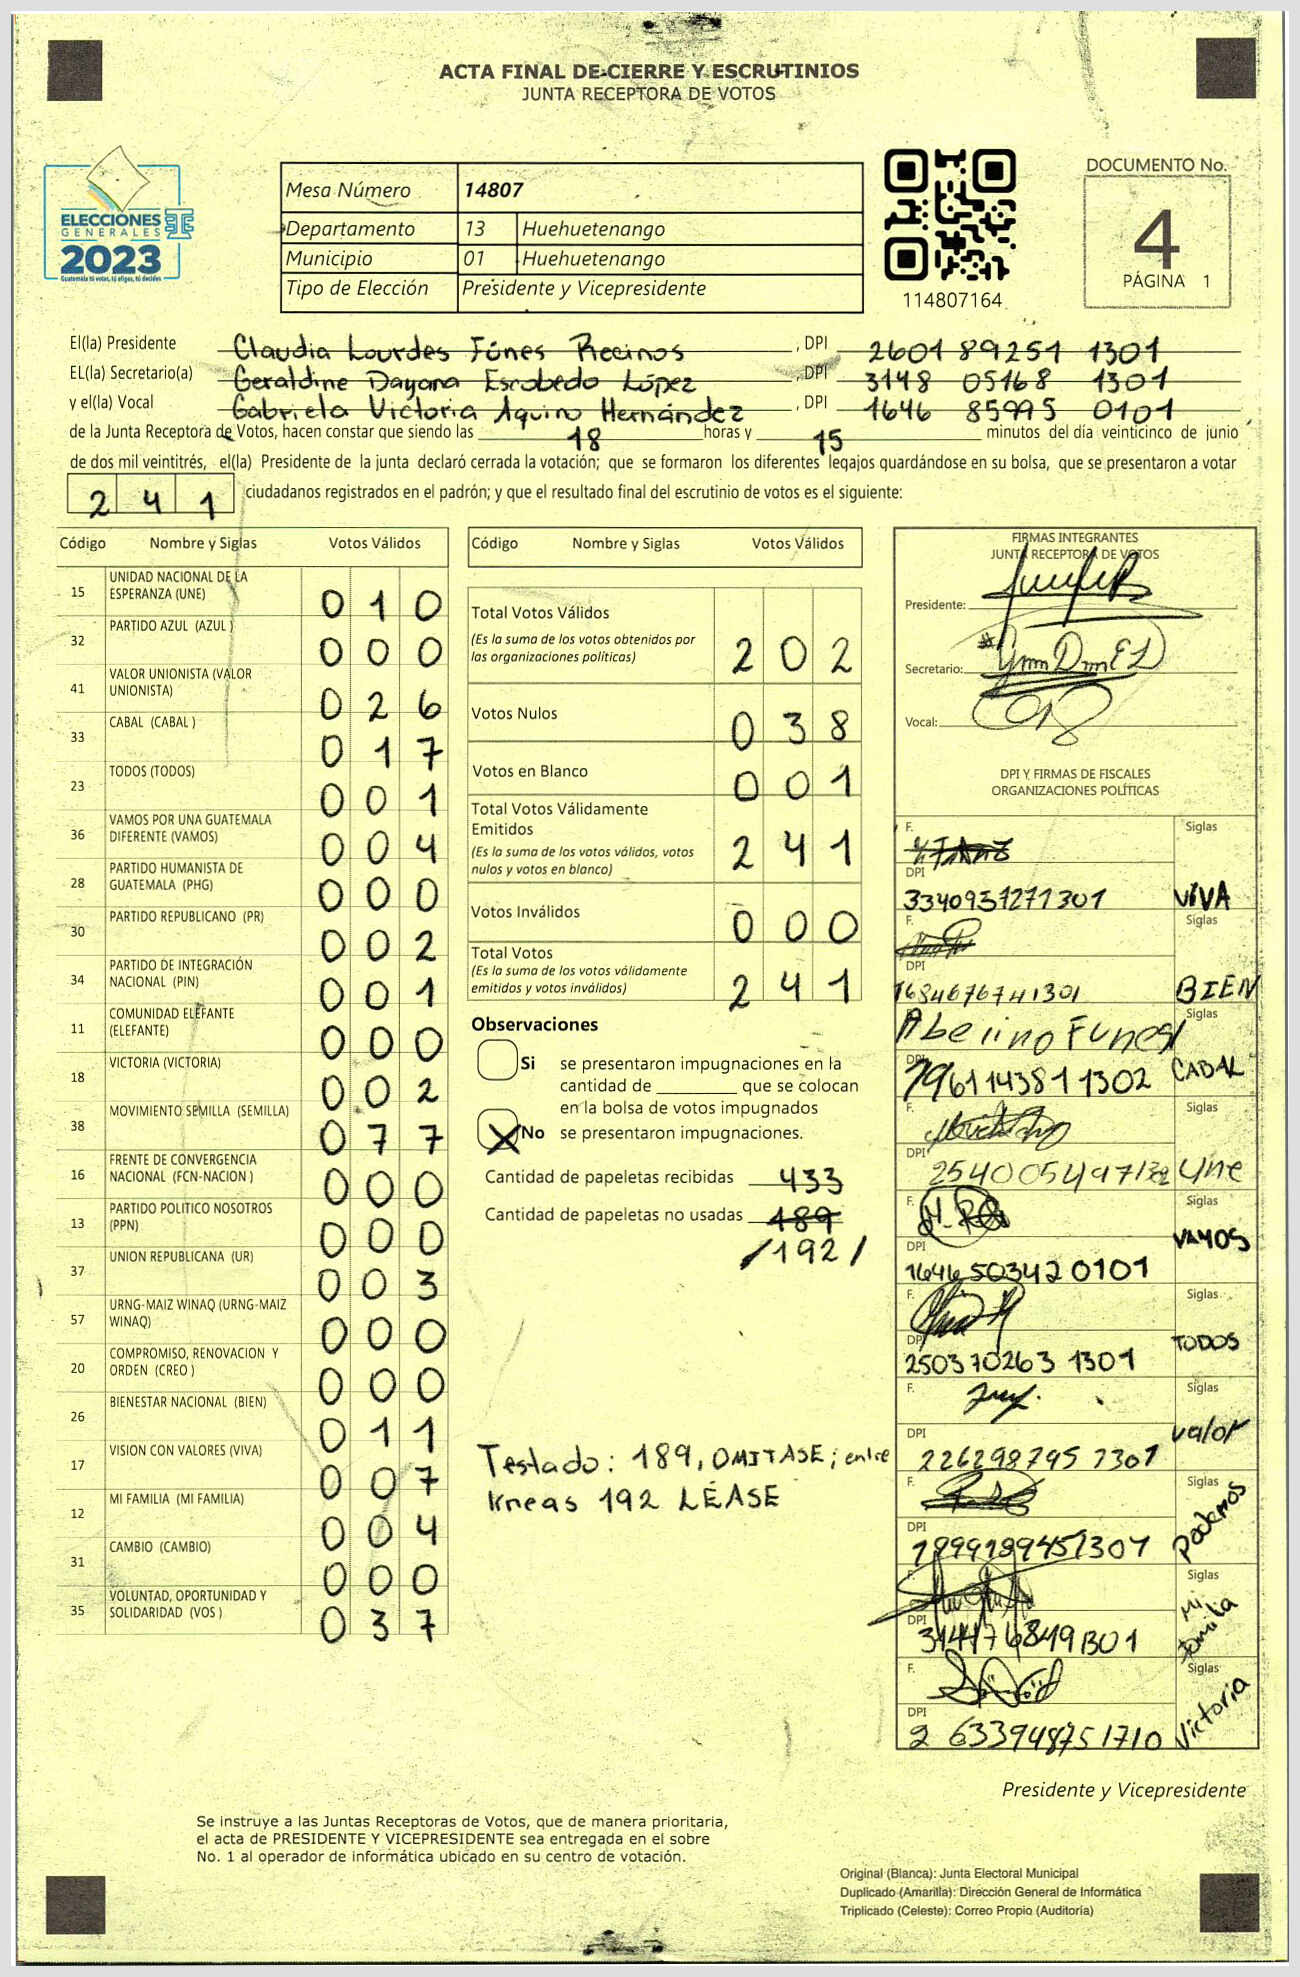 ACTA FINAL DE CIERRE Y ESCRUTINIOS
JUNTA RECEPTORA DE VOTOS
ELECCIONES
GENERALES
2023
Guatemala tú votas, tú eliges, tú decides
Mesa Número 14807
Departamento 13 Huehuetenango
Municipio 01 Huehuetenango
Tipo de Elección Presidente y Vicepresidente
114807164
DOCUMENTO No.
4
PÁGINA 1
El(la) Presidente Claudia Lourdes Fúnes Recinos, DPI 2601 89251 1301
EL(la) Secretario(a) Geraldine Dayana Escobedo López, DPI 3148 05168 1301
y el(la) Vocal Gabriela Victoria Aquino Hernández, DPI 1646 85995 0101
de la Junta Receptora de Votos, hacen constar que siendo las 18 horas y 15 minutos del día veinticinco de junio
de dos mil veintitrés, el(la) Presidente de la junta declaró cerrada la votación; que se formaron los diferentes legajos quardándose en su bolsa, que se presentaron a votar
241 ciudadanos registrados en el padrón; y que el resultado final del escrutinio de votos es el siguiente:
Código Nombre y Siglas Votos Válidos
15 UNIDAD NACIONAL DE LA ESPERANZA (UNE) 010
32 PARTIDO AZUL (AZUL ) 000
41 VALOR UNIONISTA (VALOR UNIONISTA) 026
33 CABAL (CABAL ) 017
23 TODOS (TODOS) 001
36 VAMOS POR UNA GUATEMALA DIFERENTE (VAMOS) 004
28 PARTIDO HUMANISTA DE GUATEMALA (PHG) 000
30 PARTIDO REPUBLICANO (PR) 002
34 PARTIDO DE INTEGRACIÓN NACIONAL (PIN) 001
11 COMUNIDAD ELEFANTE (ELEFANTE) 000
18 VICTORIA (VICTORIA) 002
38 MOVIMIENTO SEMILLA (SEMILLA) 077
16 FRENTE DE CONVERGENCIA NACIONAL (FCN-NACION ) 000
13 PARTIDO POLITICO NOSOTROS (PPN) 000
37 UNION REPUBLICANA (UR) 003
57 URNG-MAIZ WINAQ (URNG-MAIZ WINAQ) 000
20 COMPROMISO, RENOVACION Y ORDEN (CREO ) 000
26 BIENESTAR NACIONAL (BIEN) 011
17 VISION CON VALORES (VIVA) 007
12 MI FAMILIA (MI FAMILIA) 004
31 CAMBIO (CAMBIO) 000
35 VOLUNTAD, OPORTUNIDAD Y SOLIDARIDAD (VOS ) 037
Código Nombre y Siglas Votos Válidos
Total Votos Válidos 202
(Es la suma de los votos obtenidos por
las organizaciones políticas)
Votos Nulos 038
Votos en Blanco 001
Total Votos Válidamente
Emitidos 241
(Es la suma de los votos válidos, votos
nulos y votos en blanco)
Votos Inválidos 000
Total Votos 241
(Es la suma de los votos válidamente
emitidos y votos inválidos)
Observaciones
Si se presentaron impugnaciones en la
cantidad de que se colocan
en la bolsa de votos impugnados
X No se presentaron impugnaciones.
Cantidad de papeletas recibidas 433
Cantidad de papeletas no usadas 189
/192/
Testado: 189, OMITASE; entre
lineas 192 LÉASE
FIRMAS INTEGRANTES
JUNTA RECEPTORA DE VOTOS
Presidente:
Secretario:
Vocal:
DPI Y FIRMAS DE FISCALES
ORGANIZACIONES POLÍTICAS
F. Siglas
DPI 3340957271301 VIVA
F. Siglas
DPI 1684676741301 BIEN
Abelino Funes Siglas
DPI 7961143811302 CABAL
F. Siglas
DPI Une
F. Siglas
DPI 1646503420101 VAMOS
F. Siglas
DPI 250370263 1301 TODOS
F. Siglas
DPI 226298795 1301 valor
F. Siglas
DPI 1899989451301 Podemos
F. Siglas
DPI Mi Familia
F. Siglas
DPI 2 633948751710 Victoria
Presidente y Vicepresidente
Se instruye a las Juntas Receptoras de Votos, que de manera prioritaria,
el acta de PRESIDENTE Y VICEPRESIDENTE sea entregada en el sobre
No. 1 al operador de informática ubicado en su centro de votación.
Original (Blanca): Junta Electoral Municipal
Duplicado (Amarilla): Dirección General de Informática
Triplicado (Celeste): Correo Propio (Auditoría)